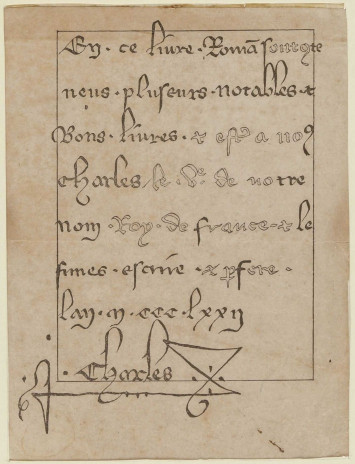 En · ce livre · Romā sont 9te
neus · pluseurs · notables · ⁊
Bons · livres · ⁊ est a noꝰ
Charles · le · vᵉ · de notre
nom · Roy · de france · ⁊ le
fimes · escrire · ⁊ ꝑfere ·
lan · m · ccc · lxxii
Charles